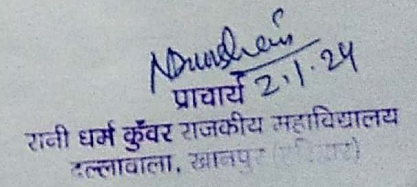 प्राचार्य 2.1.24
रानी धर्म कुँवर राजकीय महाविद्यालय
दल्लावाला, खानपुर (हरिद्वार)